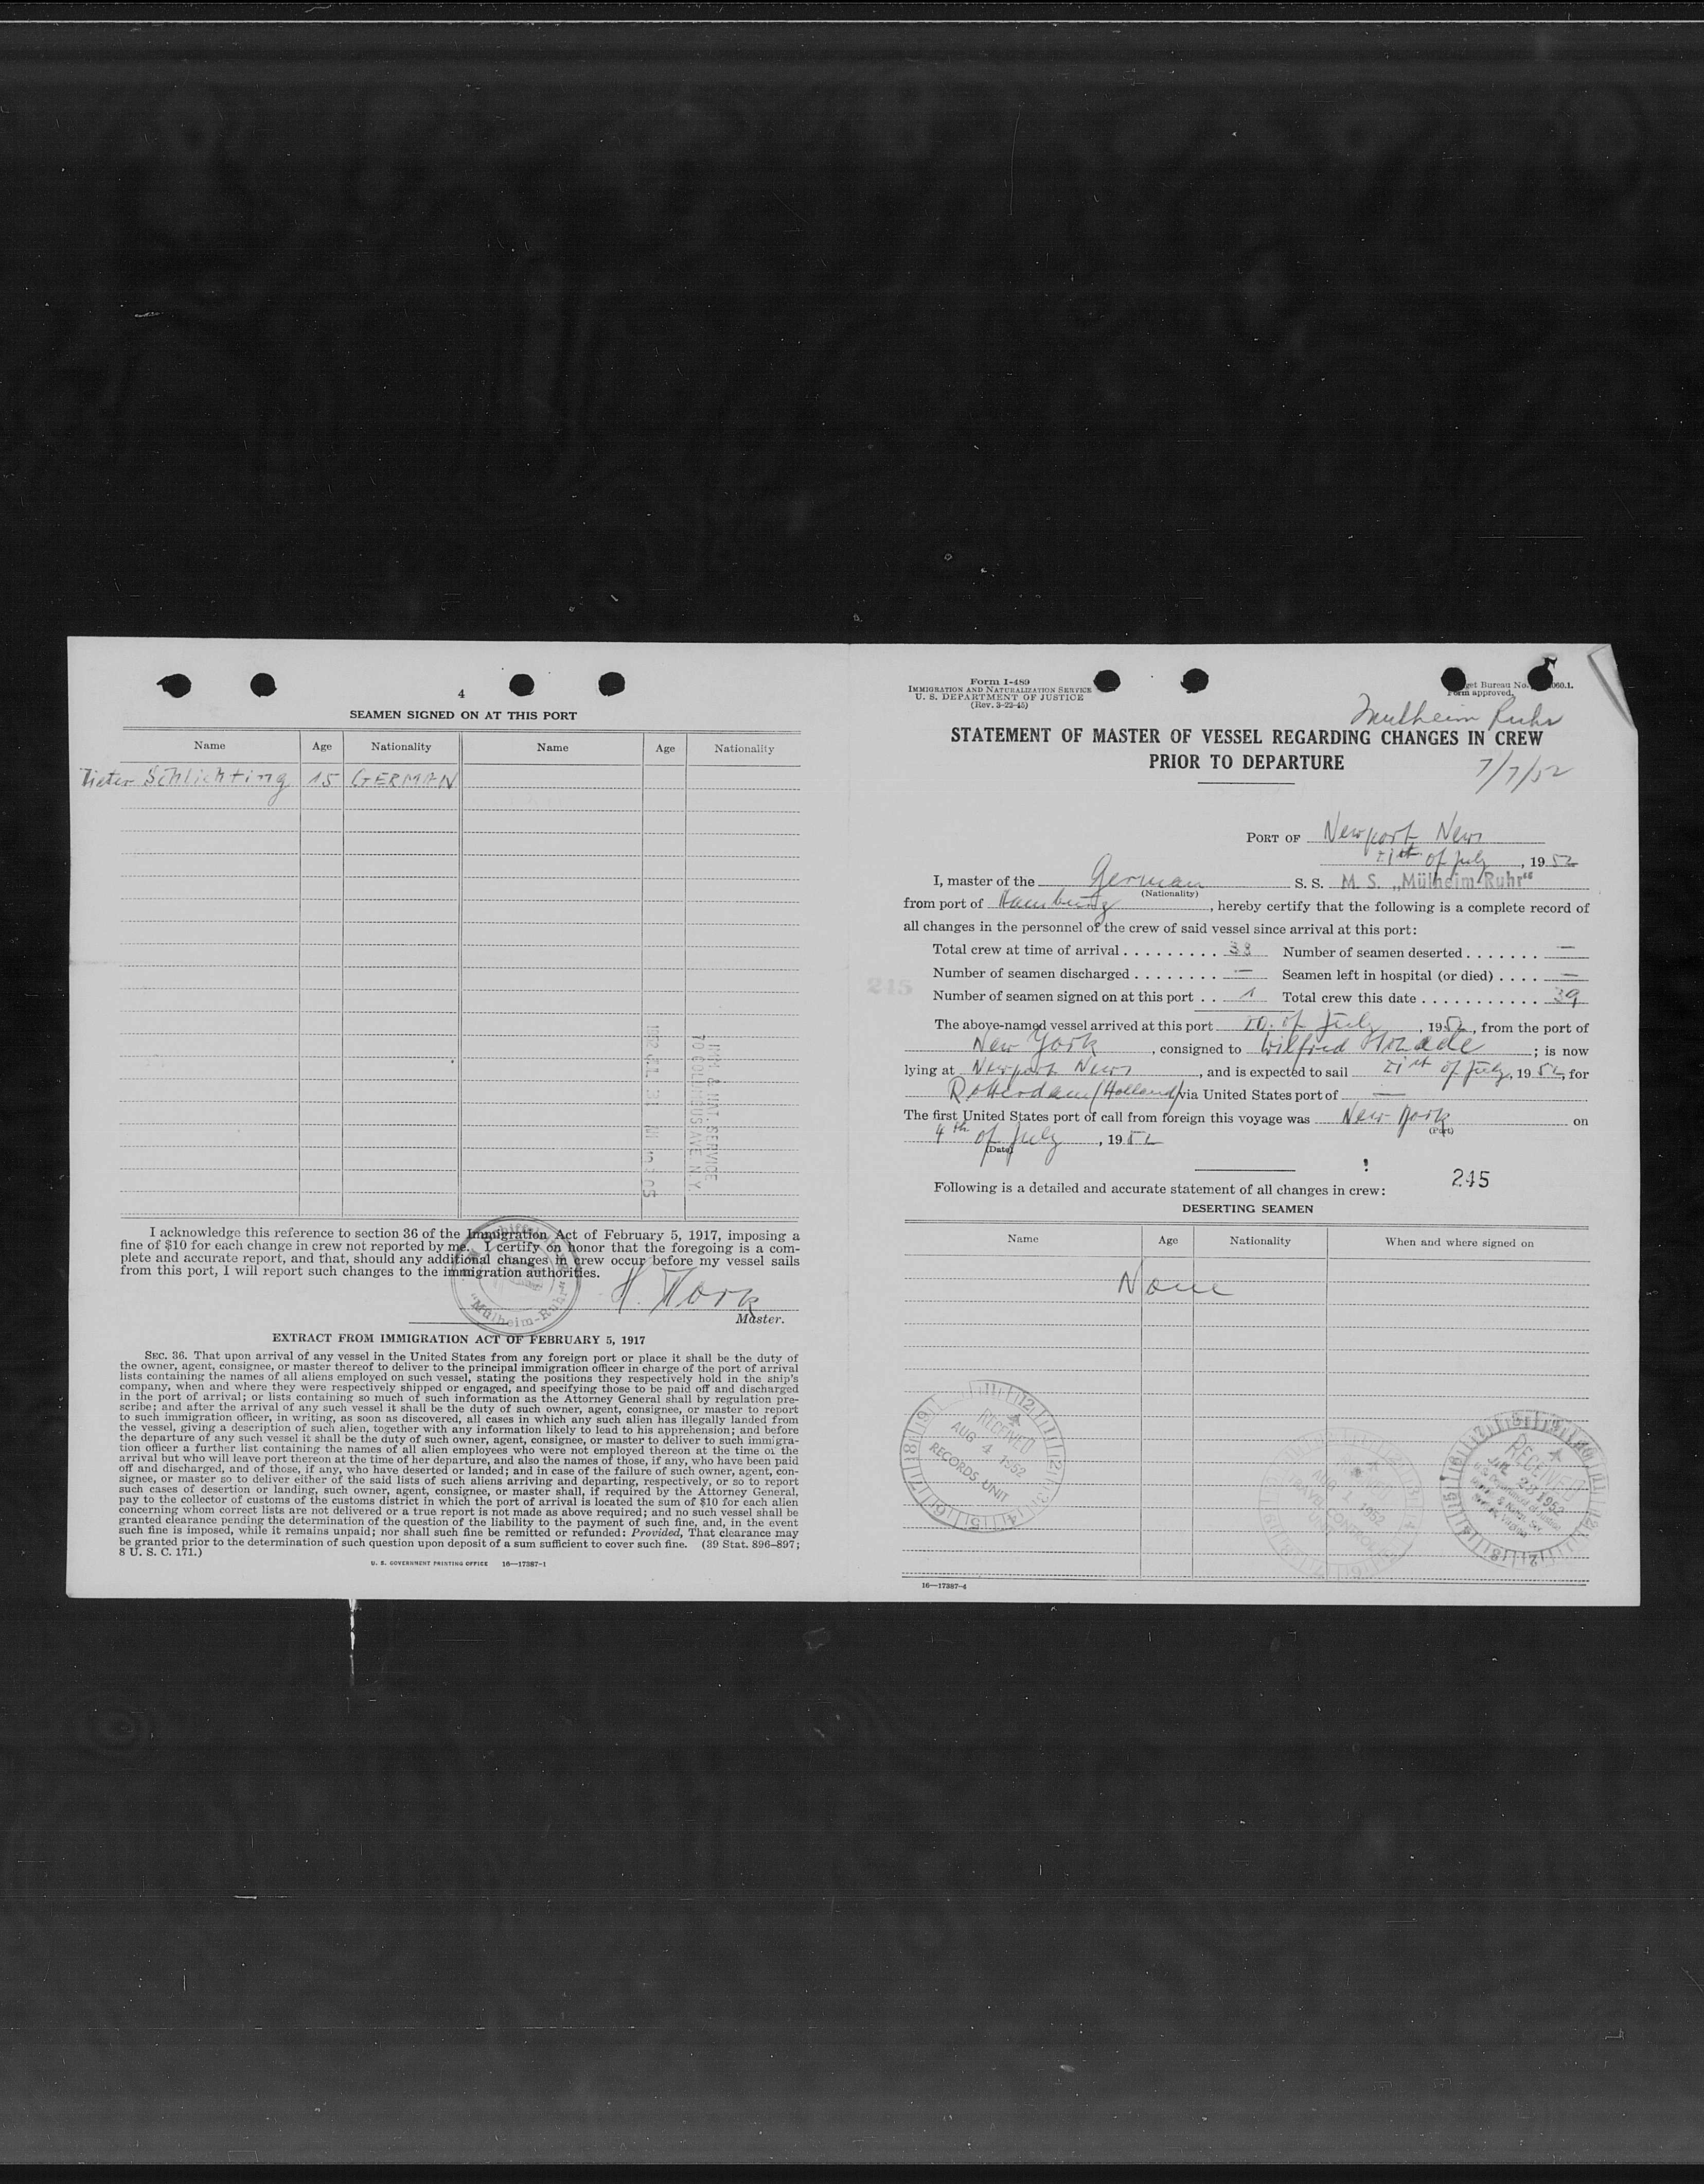 4
SEAMEN SIGNED ON AT THIS PORT
Name Age Nationality Name Age Nationality
Dieter Schlichting 15 GERMAN
IMM & NAT. SERVICE
70 COLUMBUS AVE N.Y.
I acknowledge this reference to section 36 of the Immigration Act of February 5, 1917, imposing a
fine of $10 for each change in crew not reported by me. I certify on honor that the foregoing is a com-
plete and accurate report, and that, should any additional changes in crew occur before my vessel sails
from this port, I will report such changes to the immigration authorities.
"Mülheim-Ruhr"
H.
Master.
EXTRACT FROM IMMIGRATION ACT OF FEBRUARY 5, 1917
SEC. 36. That upon arrival of any vessel in the United States from any foreign port or place it shall be the duty of
the owner, agent, consignee, or master thereof to deliver to the principal immigration officer in charge of the port of arrival
lists containing the names of all aliens employed on such vessel, stating the positions they respectively hold in the ship's
company, when and where they were respectively shipped or engaged, and specifying those to be paid off and discharged
in the port of arrival; or lists containing so much of such information as the Attorney General shall by regulation pre-
scribe; and after the arrival of any such vessel it shall be the duty of such owner, agent, consignee, or master to report
to such immigration officer, in writing, as soon as discovered, all cases in which any such alien has illegally landed from
the vessel, giving a description of such alien, together with any information likely to lead to his apprehension; and before
the departure of any such vessel it shall be the duty of such owner, agent, consignee, or master to deliver to such immigra-
tion officer a further list containing the names of all alien employees who were not employed thereon at the time of the
arrival but who will leave port thereon at the time of her departure, and also the names of those, if any, who have been paid
off and discharged, and of those, if any, who have deserted or landed; and in case of the failure of such owner, agent, con-
signee, or master so to deliver either of the said lists of such aliens arriving and departing, respectively, or so to report
such cases of desertion or landing, such owner, agent, consignee, or master shall, if required by the Attorney General,
pay to the collector of customs of the customs district in which the port of arrival is located the sum of $10 for each alien
concerning whom correct lists are not delivered or a true report is not made as above required; and no such vessel shall be
granted clearance pending the determination of the question of the liability to the payment of such fine, and, in the event
such fine is imposed, while it remains unpaid; nor shall such fine be remitted or refunded: Provided, That clearance may
be granted prior to the determination of such question upon deposit of a sum sufficient to cover such fine. (39 Stat. 896-897;
8 U. S. C. 171.)
U. S. GOVERNMENT PRINTING OFFICE 16—17387-1
Form I-489
IMMIGRATION AND NATURALIZATION SERVICE
U. S. DEPARTMENT OF JUSTICE
(Rev. 3-22-45)
get Bureau No. 060.1.
Form approved.
Mulheim Ruhr
STATEMENT OF MASTER OF VESSEL REGARDING CHANGES IN CREW
PRIOR TO DEPARTURE
7/7/52
PORT OF Newport News
21st of July, 1952
I, master of the German S. S. M. S. „Mülheim-Ruhr"
(Nationality)
from port of Hamburg, hereby certify that the following is a complete record of
all changes in the personnel of the crew of said vessel since arrival at this port:
Total crew at time of arrival . . . . . . . . . 38 Number of seamen deserted . . . . . . . —
Number of seamen discharged . . . . . . . . — Seamen left in hospital (or died) . . . . —
Number of seamen signed on at this port . . 1 Total crew this date . . . . . . . . . . . 39
The above-named vessel arrived at this port 20. of July, 1952, from the port of
New York, consigned to Wilfred ; is now
lying at Newport News, and is expected to sail 21st of July, 1952, for
Rotterdam/Holland/ via United States port of —
The first United States port of call from foreign this voyage was New York on
(Port)
4th of July, 1952
(Date)
245
Following is a detailed and accurate statement of all changes in crew:
DESERTING SEAMEN
Name Age Nationality When and where signed on
None
RECEIVED
AUG 4 1952
RECORDS UNIT
AUG 1 1952
RECEIVED
JUL 28 1952
16—17387-4